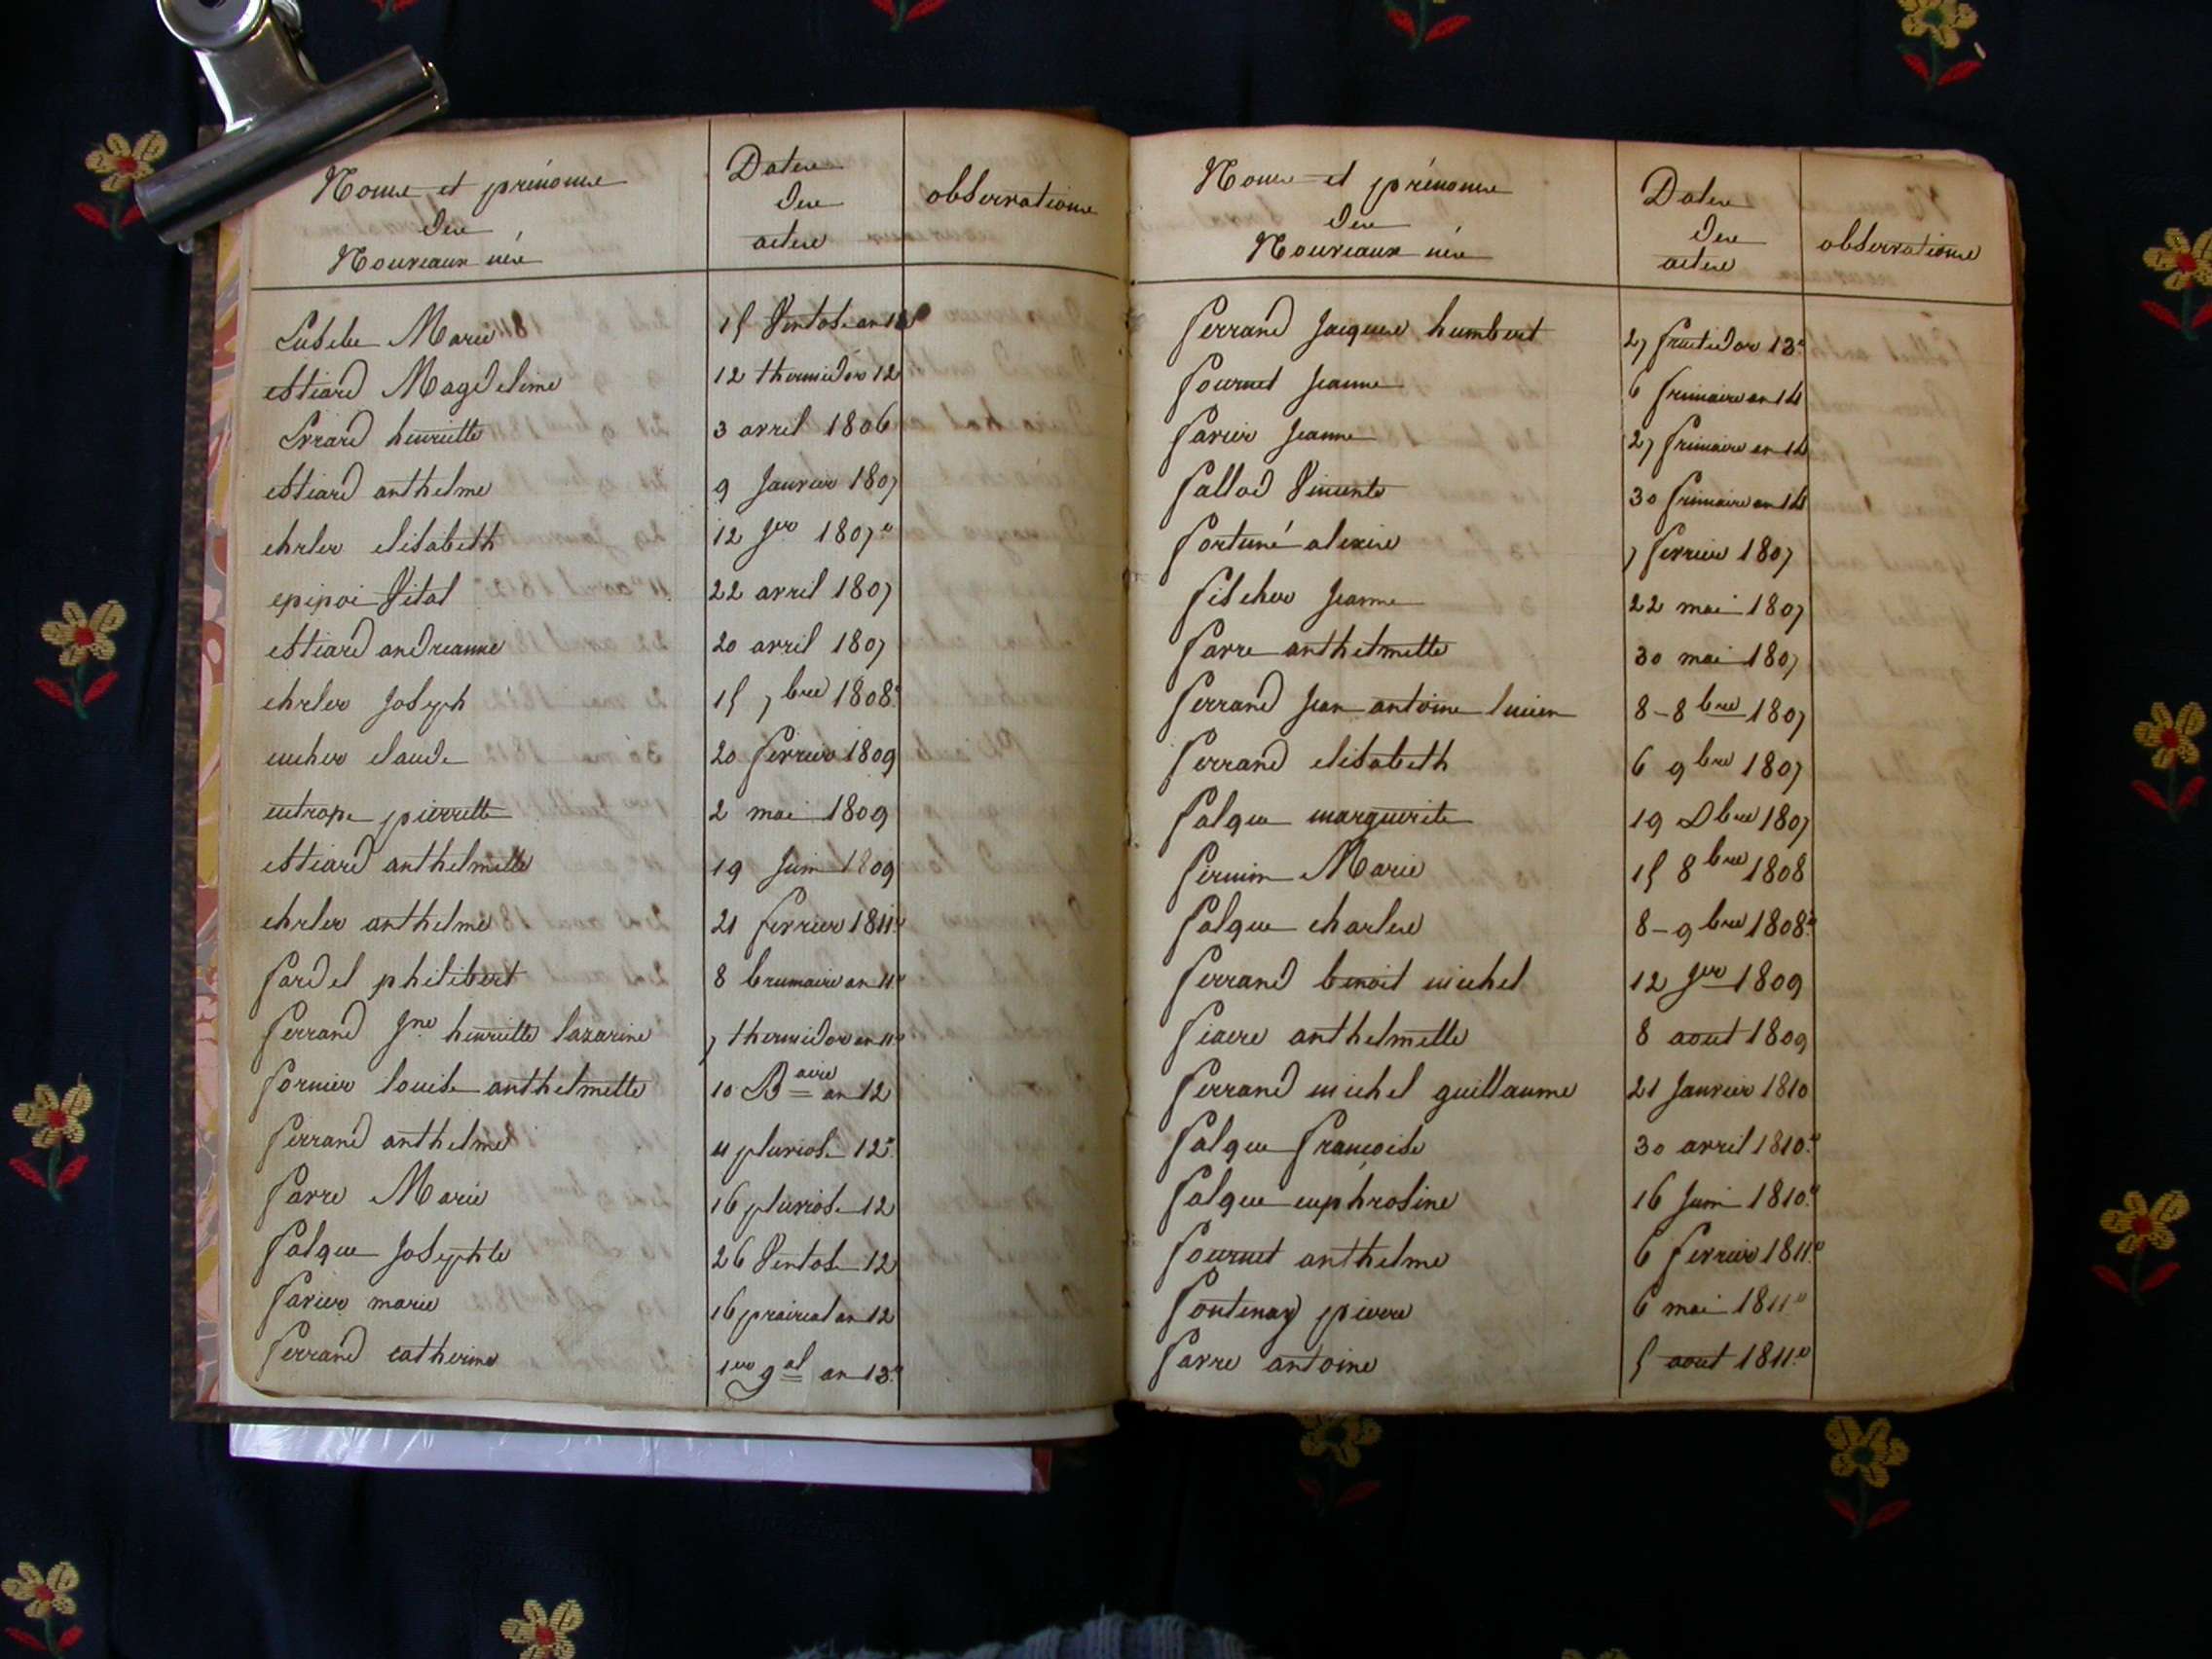 Noms et prénoms
des
Nouveaux nés
Dates
des
actes
observations
Eusebe Marie 15 Ventose an 12
estiard Magdeleine 12 thermidor 12
Evrard henriette 3 avril 1806
estiard anthelme 9 Janvier 1807
ehrler elisabeth 12 Jer 1807.e
epipoi Vital 22 avril 1807
estiard andreanne 20 avril 1807
ehrler Joseph 15 7bre 1808.e
eucher claude 20 fevrier 1809
eutrope pierrette 2 mai 1809
estiard anthelmette 19 Juin 1809
ehrler anthelme 21 fevrier 1811.e
fardel philibert 8 brumaire an 11.e
ferrand Jne henriette lazarine 7 thermidor an 11.e
fornier louise anthelmette 10 Baire an 12
ferrand anthelme 4 pluviose 12.e
favre Marie 16 pluviose 12
falque Josephte 26 Ventose 12
favier marie 16 prairial an 12
ferrand catherine 1er gal an 13.e
Noms et prénoms
des
Nouveaux nés
Dates
des
actes
observations
ferrand Jacques humbert 27 fructidor 13.e
fournet Jeanne 6 frimaire an 14
favier Jeanne 27 frimaire an 14
fallod Vincente 30 frimaire an 14
fortuné alexise 7 fevrier 1807
fischer Jeanne 22 mai 1807
favre anthelmette 30 mai 1807
ferrand Jean antoine lucien 8-8bre 1807
ferrand elisabeth 6 9bre 1807
falque marguerite 19 Dbre 1807
firmin Marie 15 8bre 1808
falque charles 8-9bre 1808.e
ferrand benoit michel 12 Jer 1809
fiacre anthelmette 8 aout 1809
ferrand michel guillaume 21 Janvier 1810
falque françoise 30 avril 1810.e
falque euphrosine 16 Juin 1810.e
fournet anthelme 6 fevrier 1811.e
fontenay pierre 6 mai 1811.e
favre antoine 5 aout 1811.e